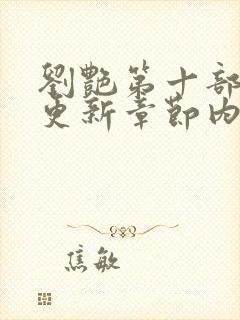 劉艷第十部
更新章節內
焦敏